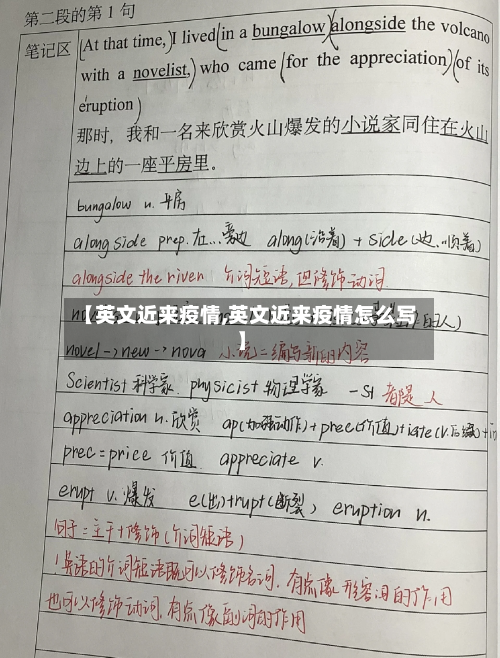 第二段的第 1 句
笔记区
(At that time,) I lived (in a bungalow) (alongside the volcano
with a novelist,) who came (for the appreciation) (of its
eruption)
那时，我和一名来欣赏火山爆发的小说家同住在火山
边上的一座平房里。
bungalow n. 平房
alongside prep. 在...旁边 along(沿着) + side(边
alongside the river 介词短语,但修饰动词
【英文近来疫情,英文近来疫情怎么写
】
novel→new→nova 小说=编写新的内容
Scientist 科学家. physicist 物理学家 -st 者, 人
appreciation n. 欣赏 ap(加强动作)+prec(价值)+iate(v.后缀)
prec=price 价值 appreciate v.
erupt v. 爆发 e(出)+rupt(断裂) eruption n.
句子=主干+修饰(介词短语)
英语的介词短语既可以修饰名词，有点像形容词的作用
也可以修饰动词，有点像副词的作用